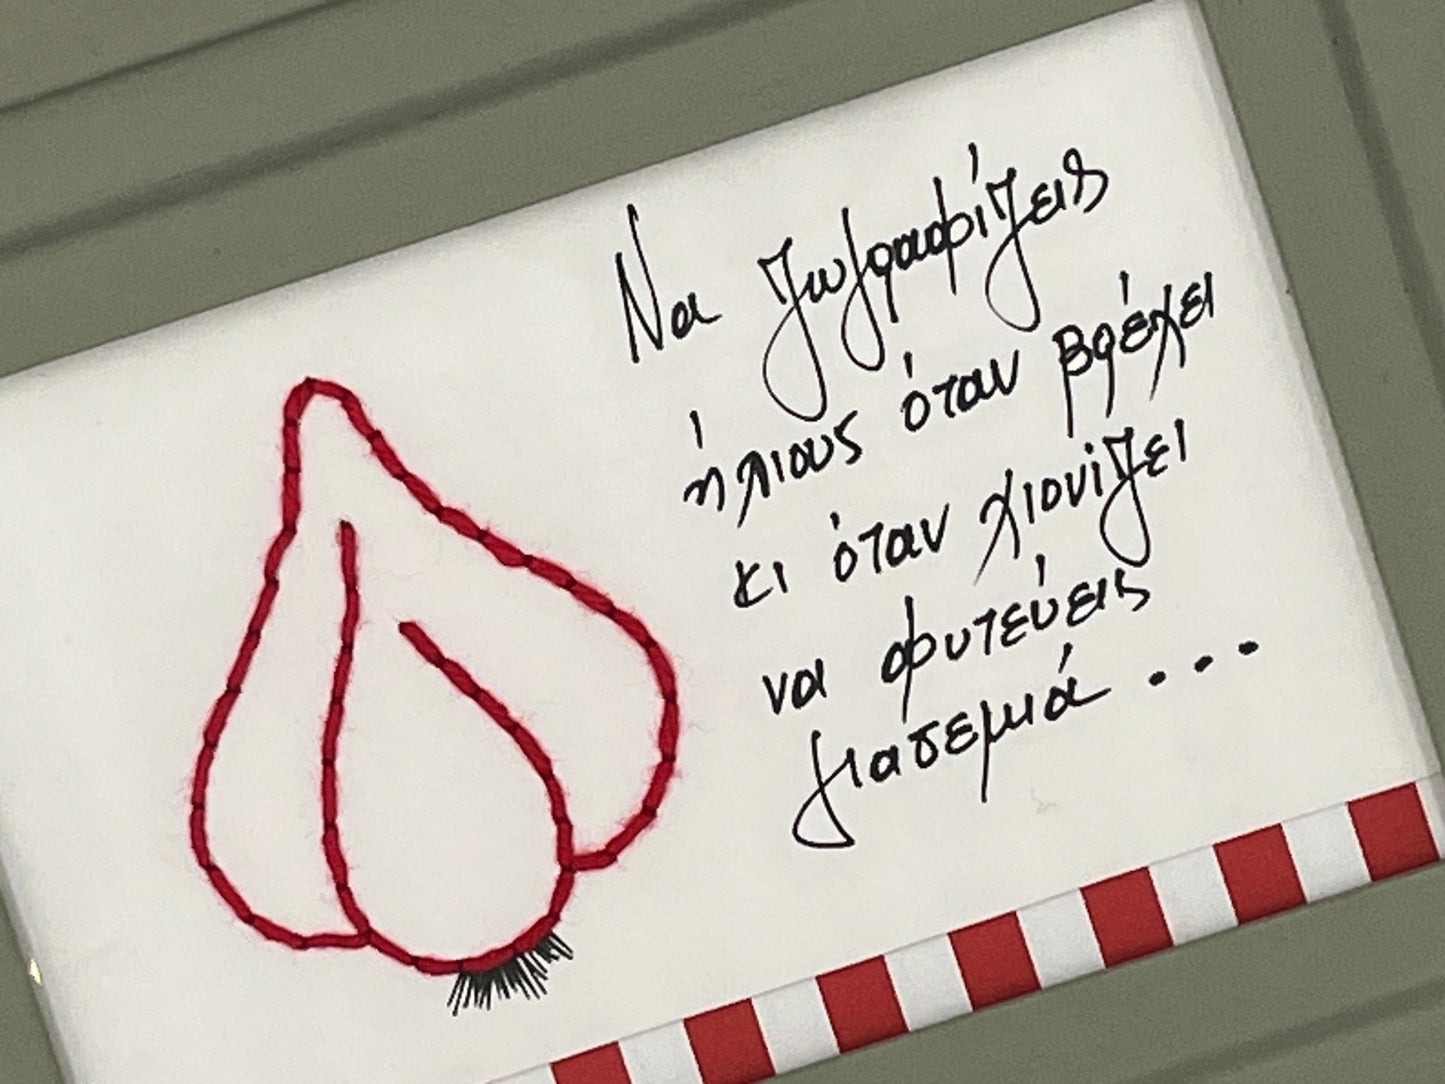 Να ζωγραφίζεις
ήλιους όταν βρέχει
κι όταν χιονίζει
να φυτεύεις
γιασεμιά...